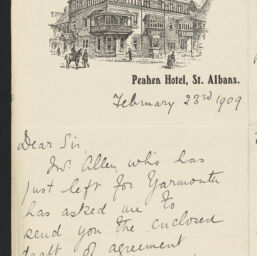 Peahen Hotel, St. Albans.
February 23rd 1909
Dear Sir,
Mr. Allen, who has
just left for Yarmouth
has asked me to
send you the enclosed
draft of agreement